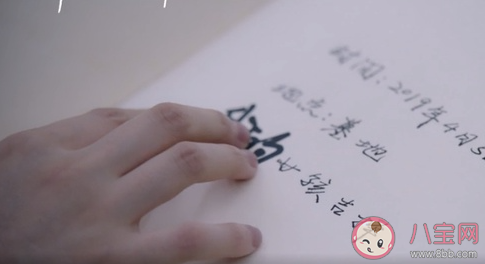 时间：2019年4月5
地点：墓地
女孩告
八宝网
www.8bb.com